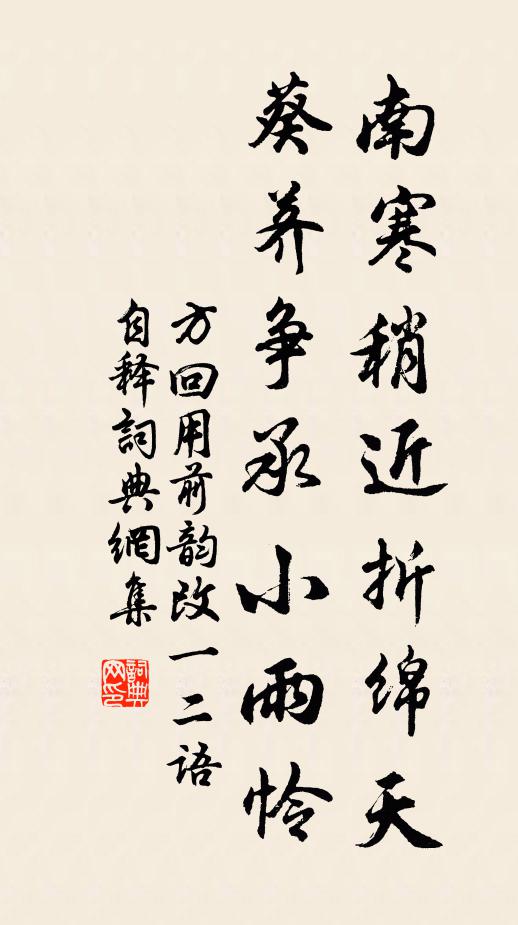 南寒稍近折绵天
葵荞争承小雨怜
方回用前韵改一二语
自释詞典網集
詞典网印